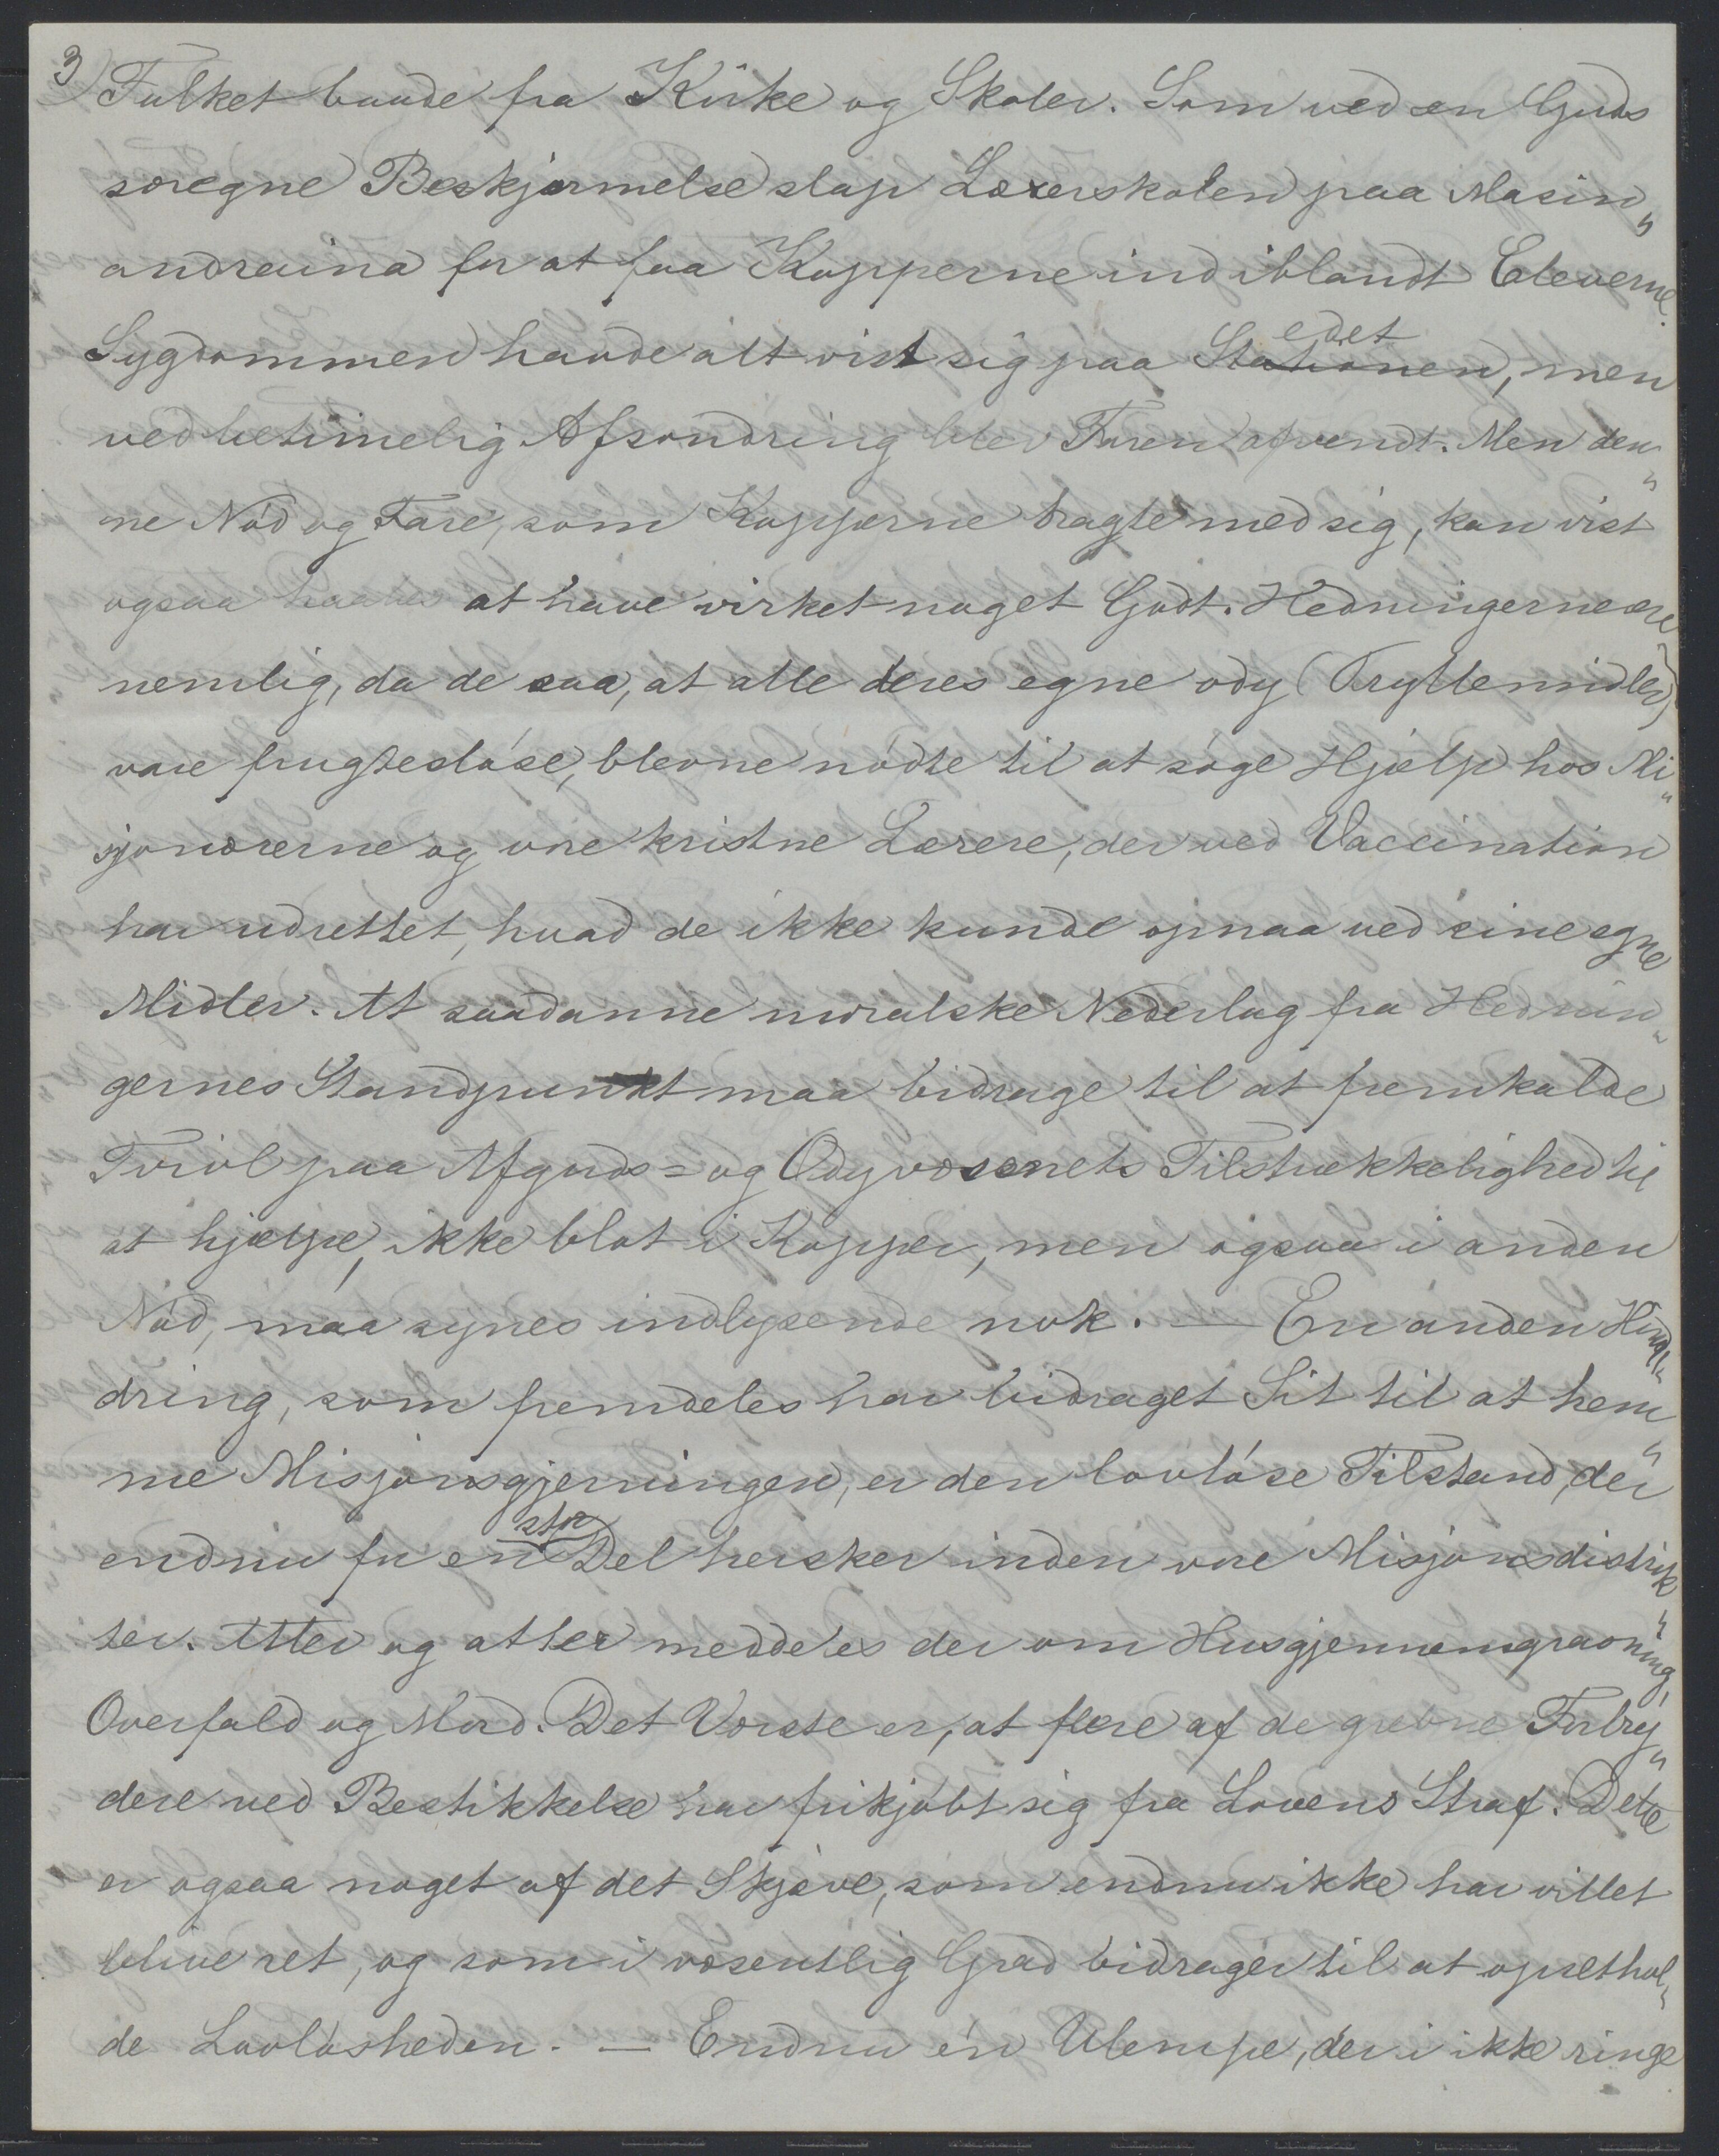 3) Folket baade fra Kirke og Skoler. Som ved en Guds
særegne Beskjærmelse slap Lærerskolen paa Masin„
andreina for at faa Kopperne ind iblandt Eleverne.
edet
Sygdommen havde alt vist sig paa Stationen, men
ved betimelig Afsondring blev Faren afvendt. Men den„
ne Nød og Fare, som Kopperne bragte med sig, kan vist
ogsaa haabes at have virket noget Godt. Hedningerne ere
nemlig, da de saa, at alle deres egne ody (Tryllemidler)
vare frugtesløse, blevne nødte til at søge Hjælp hos Mi„
sjonærerne og vore kristne Lærere, der ved Vaccination
har udrettet, hvad de ikke kunde opnaa ved sine egne
Midler. At saadanne moralske Nederlag fra Hednin„
gernes Standpunkt maa bidrage til at fremkalde
Tvivl paa Afguds= og Odyvæsenets Tilstrækkelighed til
at hjælpe, ikke blot i Kopper, men ogsaa i anden
Nød, maa synes indlysende nok. — En anden Hin„
dring, som fremdeles har bidraget Sit til at hem„
me Misjonsgjerningen, er den lovløse Tilstand, der
stor
endnu for en Del hersker inden vore Misjonsdistrik„
ter. Atter og atter meddeles der om Husgjennemgravning,
Overfald og Mord. Det Værste er, at flere af de grebne Forbry„
dere ved Bestikkelse har frikjøbt sig fra Lovens Straf. Dette
er ogsaa noget af det Skjæve, som endnu ikke har villet
blive ret, og som i væsentlig Grad bidrager til at oprethol„
de Lovløsheden. — Endnu én Ulempe, der i ikke ringe